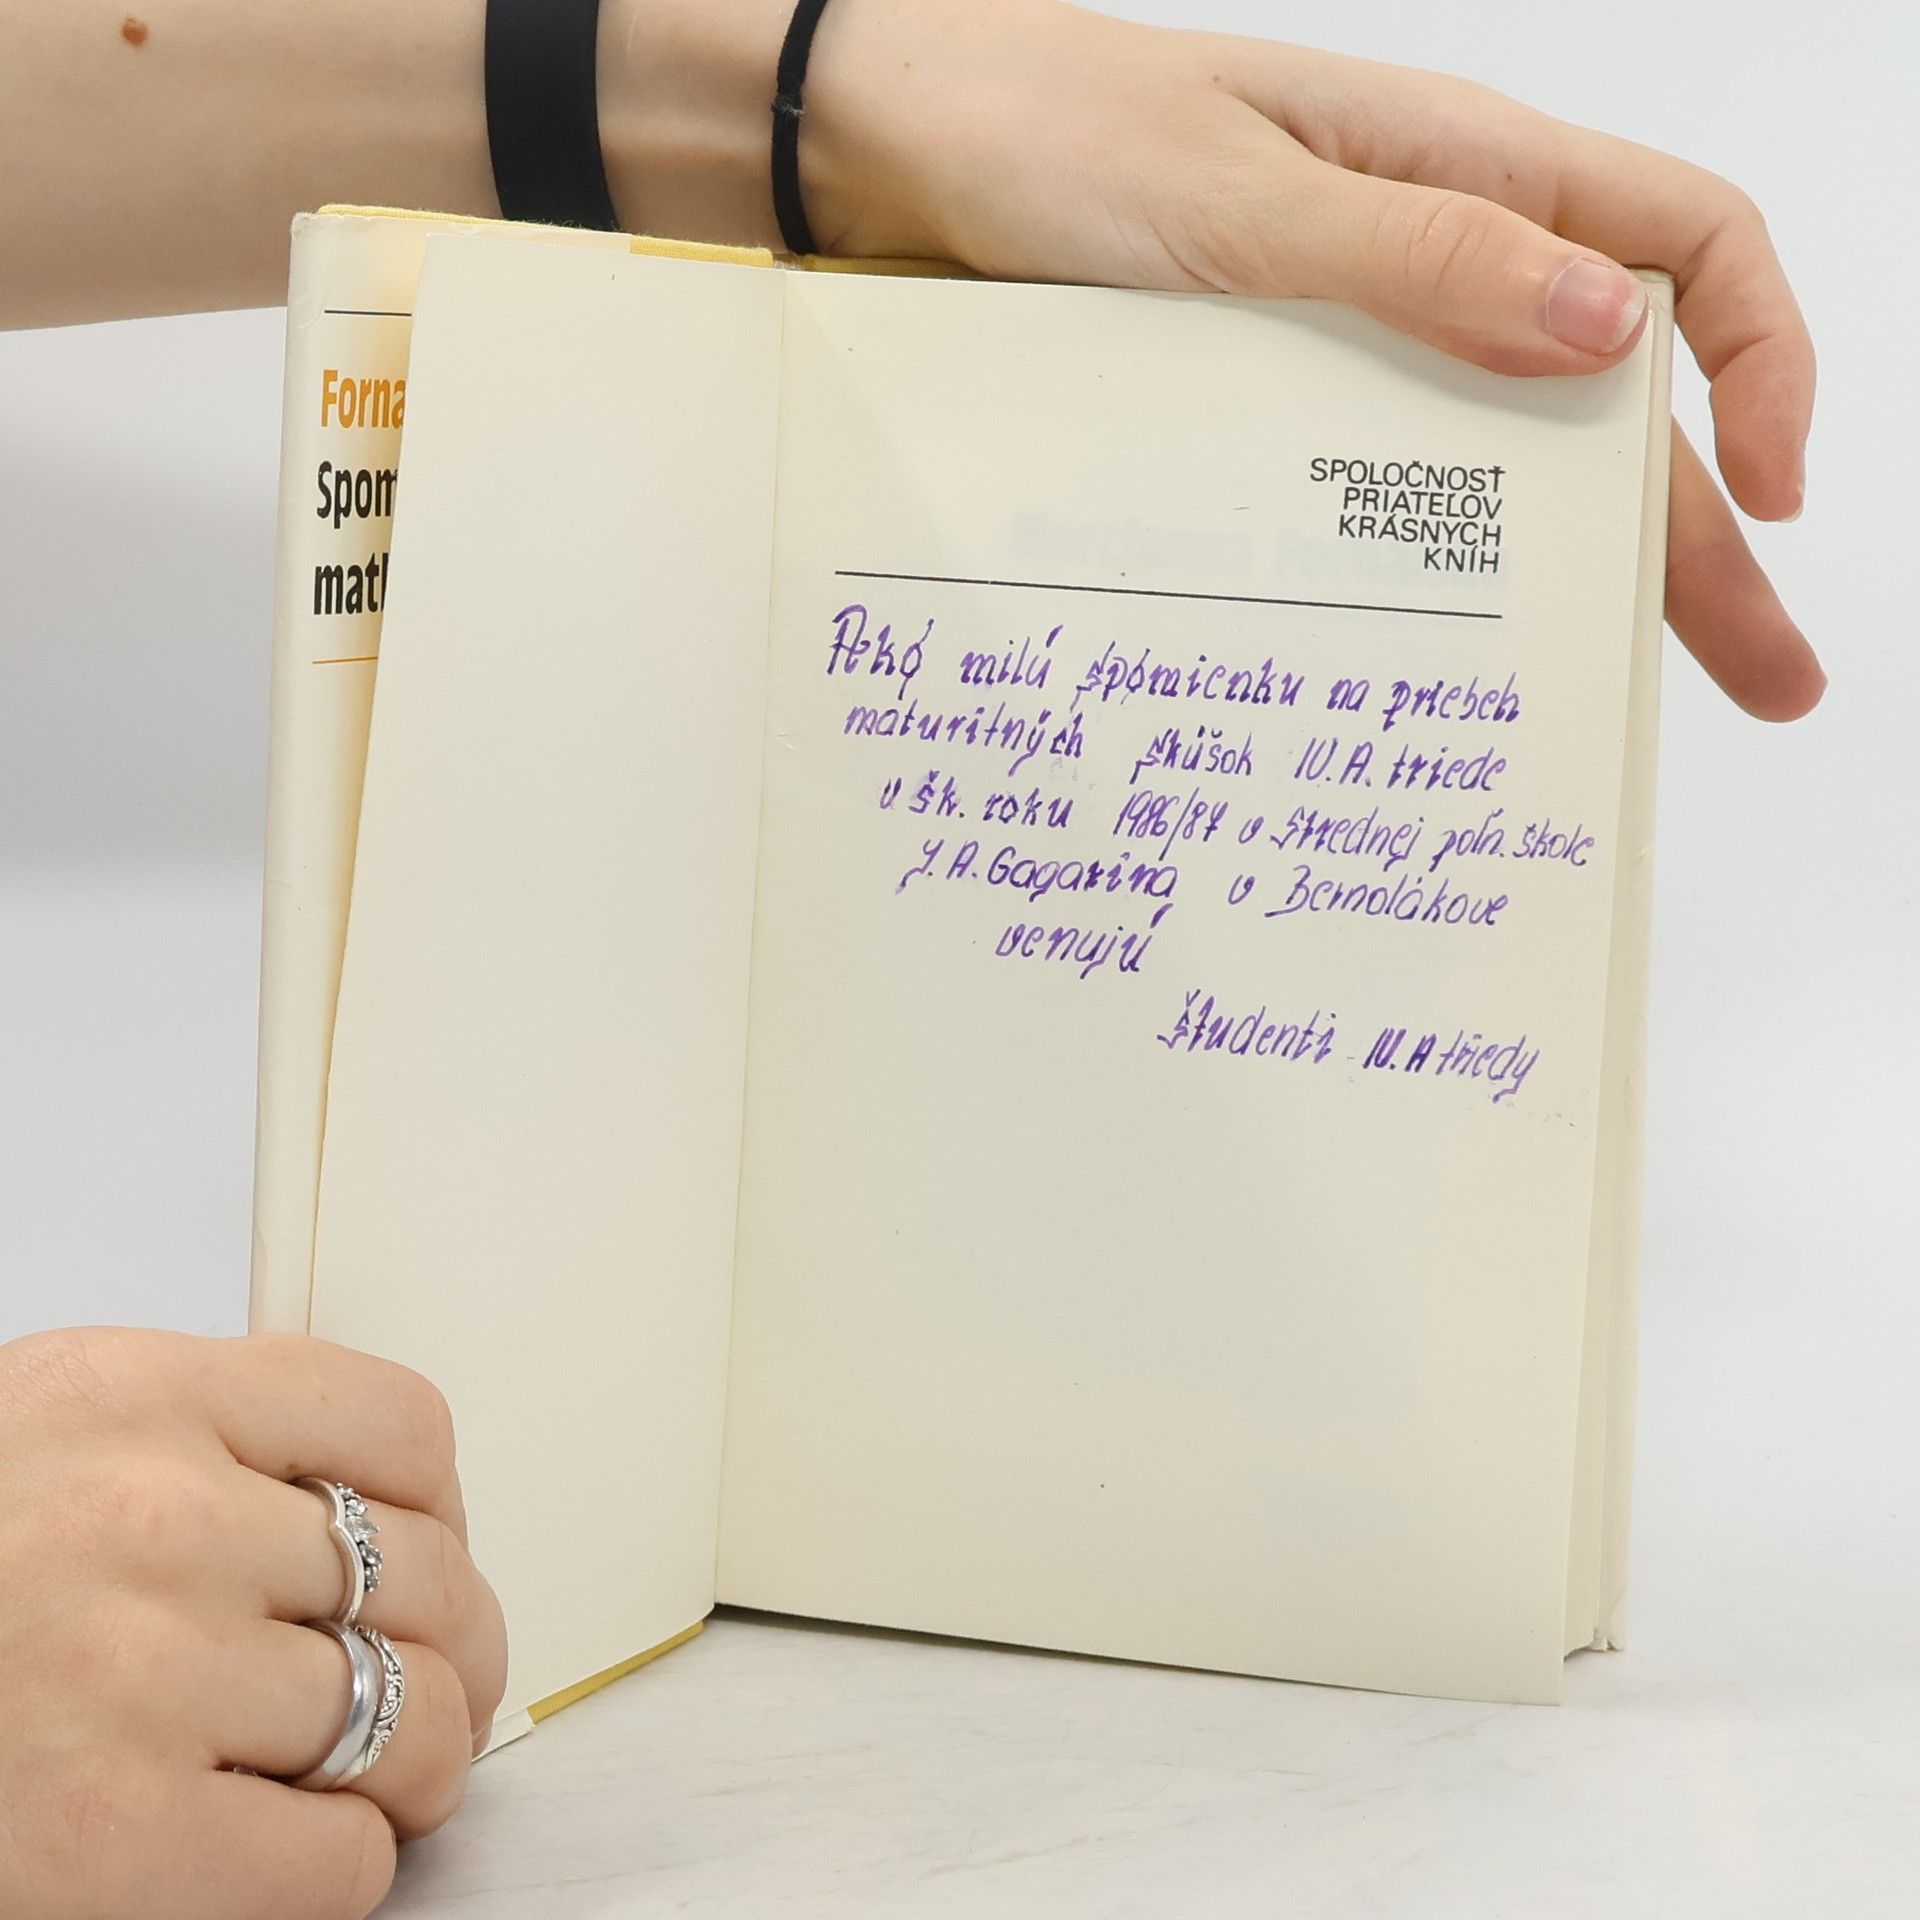 Forna
Spom
mat
SPOLOČNOSŤ
PRIATEĽOV
KRÁSNYCH
KNÍH
Ako milú spomienku na priebeh
maturitných skúšok IV. A. triede
v šk. roku 1986/87 v Strednej poľn. škole
J. A. Gagarina v Bernolákove
venujú
Študenti IV. A triedy